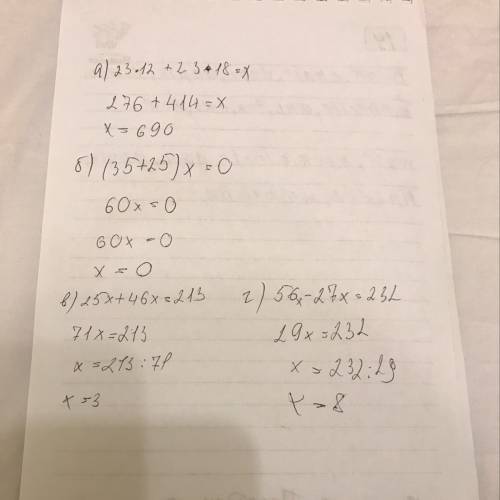 а) 23·12 + 23·18=x
276+414=x
x=690
б) (35+25)x=0
60x=0
60x=0
x=0
в) 25x+46x=213
71x=213
x=213:71
x=3
г) 56x-27x=232
29x=232
x=232:29
x=8